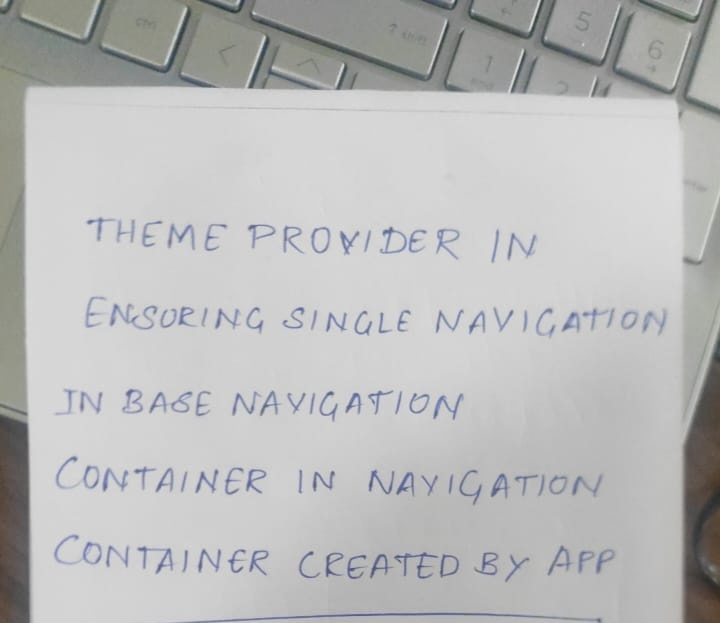 ctrl
<
^
? shift
1
end
2
5
6
THEME PROVIDER IN
ENSURING SINGLE NAVIGATION
IN BASE NAVIGATION
CONTAINER IN NAVIGATION
CONTAINER CREATED BY APP